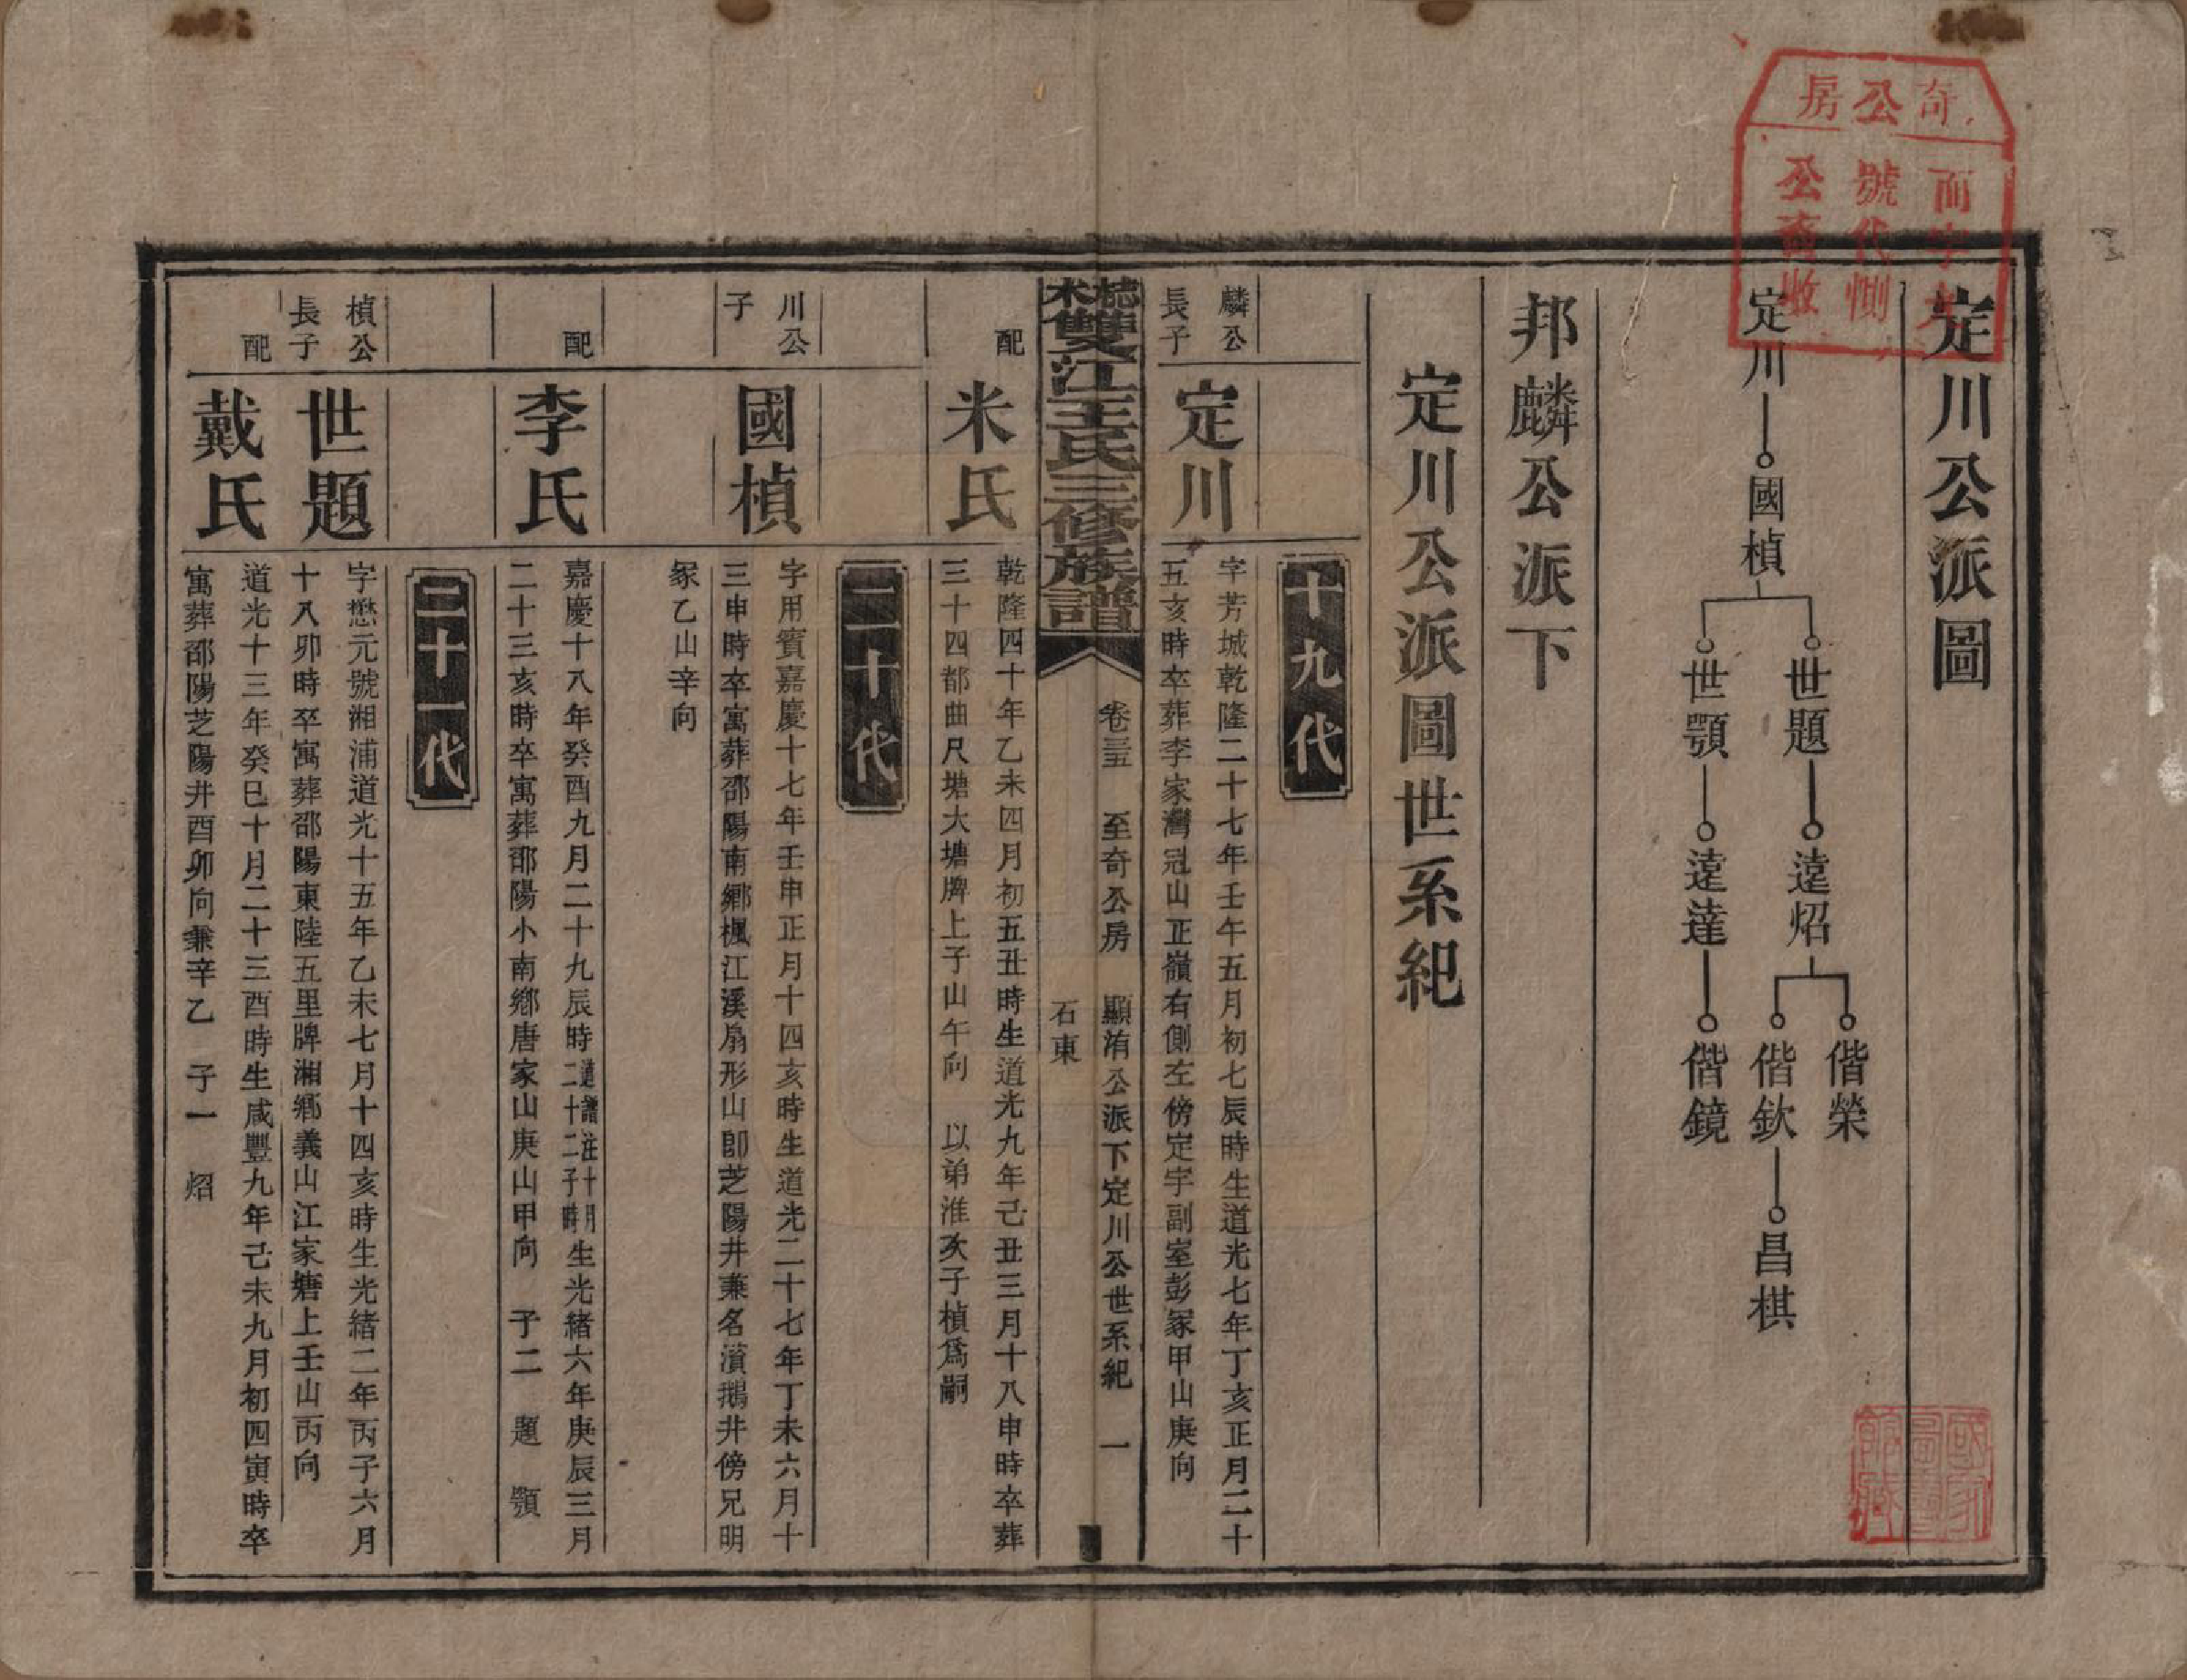 奇公房
而字
號
公裔收
定川公派圖
定川
國楨
世題
世顎
遠炤
遠達
偕榮
偕欽
偕鏡
昌棋
邦麟公派下
定川公派圖世系紀
十九代
麟公長子
定川
字芳城乾隆二十七年壬午五月初七辰時生道光七年丁亥正月二十
五亥時卒葬李家灣冠山正嶺右側左傍定字副室彭冢甲山庚向
雙江王氏三修族譜
卷三十五
至奇公房
顯洧公派下定川公世系紀
一
石東
配
米氏
乾隆四十年乙未四月初五丑時生道光九年己丑三月十八申時卒葬
三十四都曲尺塘大塘牌上子山午向 以弟淮次子楨爲嗣
二十代
川公子
國楨
字用賓嘉慶十七年壬申正月十四亥時生道光二十七年丁未六月十
三申時卒寓葬邵陽南鄉楓江溪扇形山卽芝陽井兼名濆鵝井傍兄明
冢乙山辛向
配
李氏
嘉慶十八年癸酉九月二十九辰時
遺譜注十月
二十二子時
生光緒六年庚辰三月
二十三亥時卒寓葬邵陽小南鄉唐家山庚山甲向 子二 題 顎
二十一代
楨公長子
世題
字懋元號湘浦道光十五年乙未七月十四亥時生光緒二年丙子六月
十八卯時卒寓葬邵陽東陸五里牌湘鄉義山江家塘上壬山丙向
配
戴氏
道光十三年癸巳十月二十三酉時生咸豐九年己未九月初四寅時卒
寓葬邵陽芝陽井酉卯向兼辛乙 子一 炤
國家圖書館藏